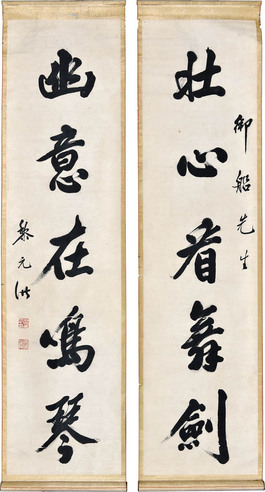 御船先生
壮心看舞劍
幽意在鳴琴
黎元洪